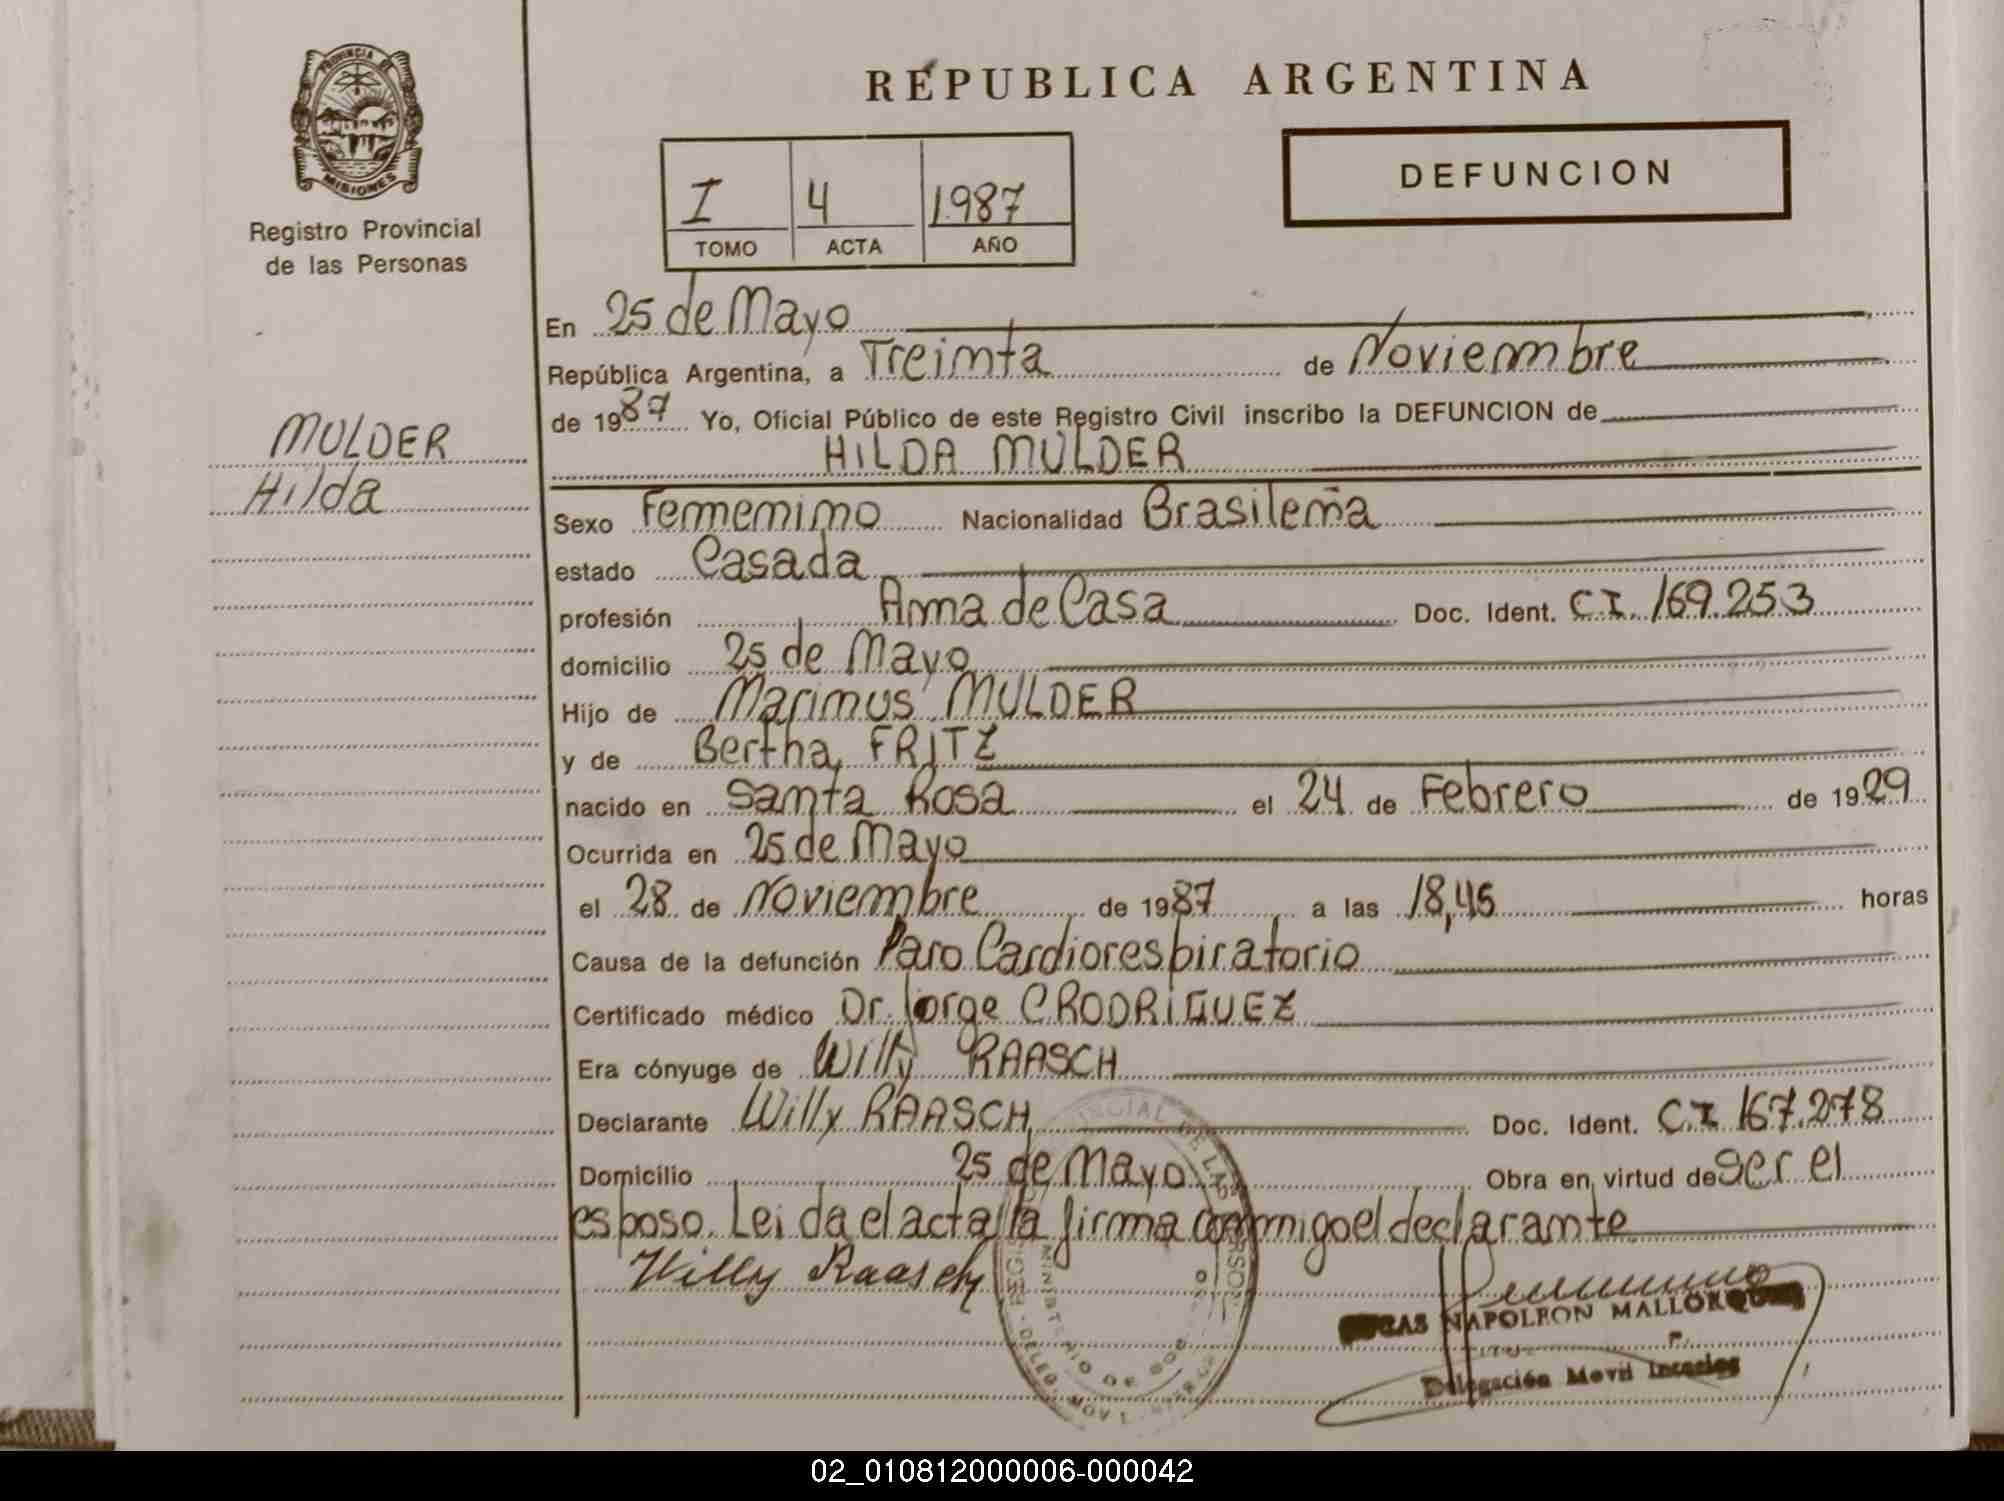 PROVINCIA DE
MISIONES
Registro Provincial
de las Personas
MULDER
Hilda
REPUBLICA ARGENTINA
DEFUNCION
I 4 1987
TOMO ACTA AÑO
En 25 de Mayo
República Argentina, a Treimta de Noviembre
de 1987 Yo, Oficial Público de este Registro Civil inscribo la DEFUNCION de
HILDA MULDER
Sexo Fememimo Nacionalidad Brasileña
estado Casada
profesión Ama de Casa Doc. Ident. C.I. 169.253
domicilio 25 de Mayo
Hijo de Marimus MULDER
y de Bertha FRITZ
nacido en Santa Rosa el 24 de Febrero de 1929
Ocurrida en 25 de Mayo
el 28 de Noviembre de 1987 a las 18,45 horas
Causa de la defunción Paro Cardiorespiratorio
Certificado médico Dr. Jorge C RODRIGUEZ
Era cónyuge de Willy RAASCH
Declarante Willy RAASCH Doc. Ident. C.I 167.278
Domicilio 25 de Mayo Obra en virtud de ser el
esposo. Leida el acta la firma conmigo el declarante
Willy Raasch
NAPOLEON
Delegación Movil
02_010812000006-000042